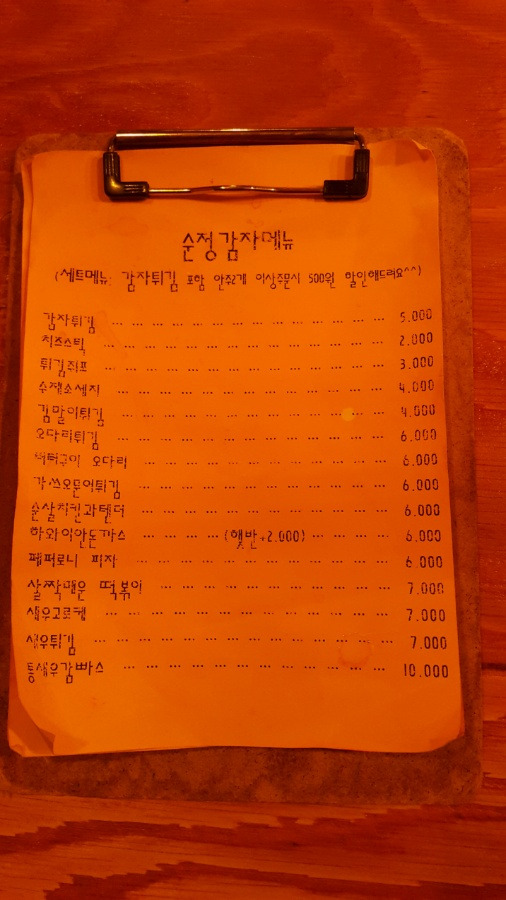 순정감자메뉴
(세트메뉴: 감자튀김 포함 안주2개 이상주문시 500원 할인해드려요^^)
감자튀김 ... ... ... ... ... ... ... ... ... ... ... ... 5.000
치즈스틱 ... ... ... ... ... ... ... ... ... ... ... ... 2.000
튀김쥐포 ... ... ... ... ... ... ... ... ... ... ... ... 3.000
수제소세지 ... ... ... ... ... ... ... ... ... ... ... 4.000
김말이튀김 ... ... ... ... ... ... ... ... ... ... ... 4.000
오다리튀김 ... ... ... ... ... ... ... ... ... ... ... 6.000
버터구이 오다리 ... ... ... ... ... ... ... ... ... ... 6.000
가쓰오문어튀김 ... ... ... ... ... ... ... ... ... ... 6.000
순살치킨과텐더 ... ... ... ... ... ... ... ... ... ... 6.000
하와이안돈까스 ... ... ... ... (햇반+2.000) ... ... ... 6.000
페퍼로니 피자 ... ... ... ... ... ... ... ... ... ... ... 6.000
살짝매운 떡볶이 ... ... ... ... ... ... ... ... ... ... 7.000
새우고로케 ... ... ... ... ... ... ... ... ... ... ... 7.000
새우튀김 ... ... ... ... ... ... ... ... ... ... ... ... 7.000
통새우감빠스 ... ... ... ... ... ... ... ... ... ... ... 10.000